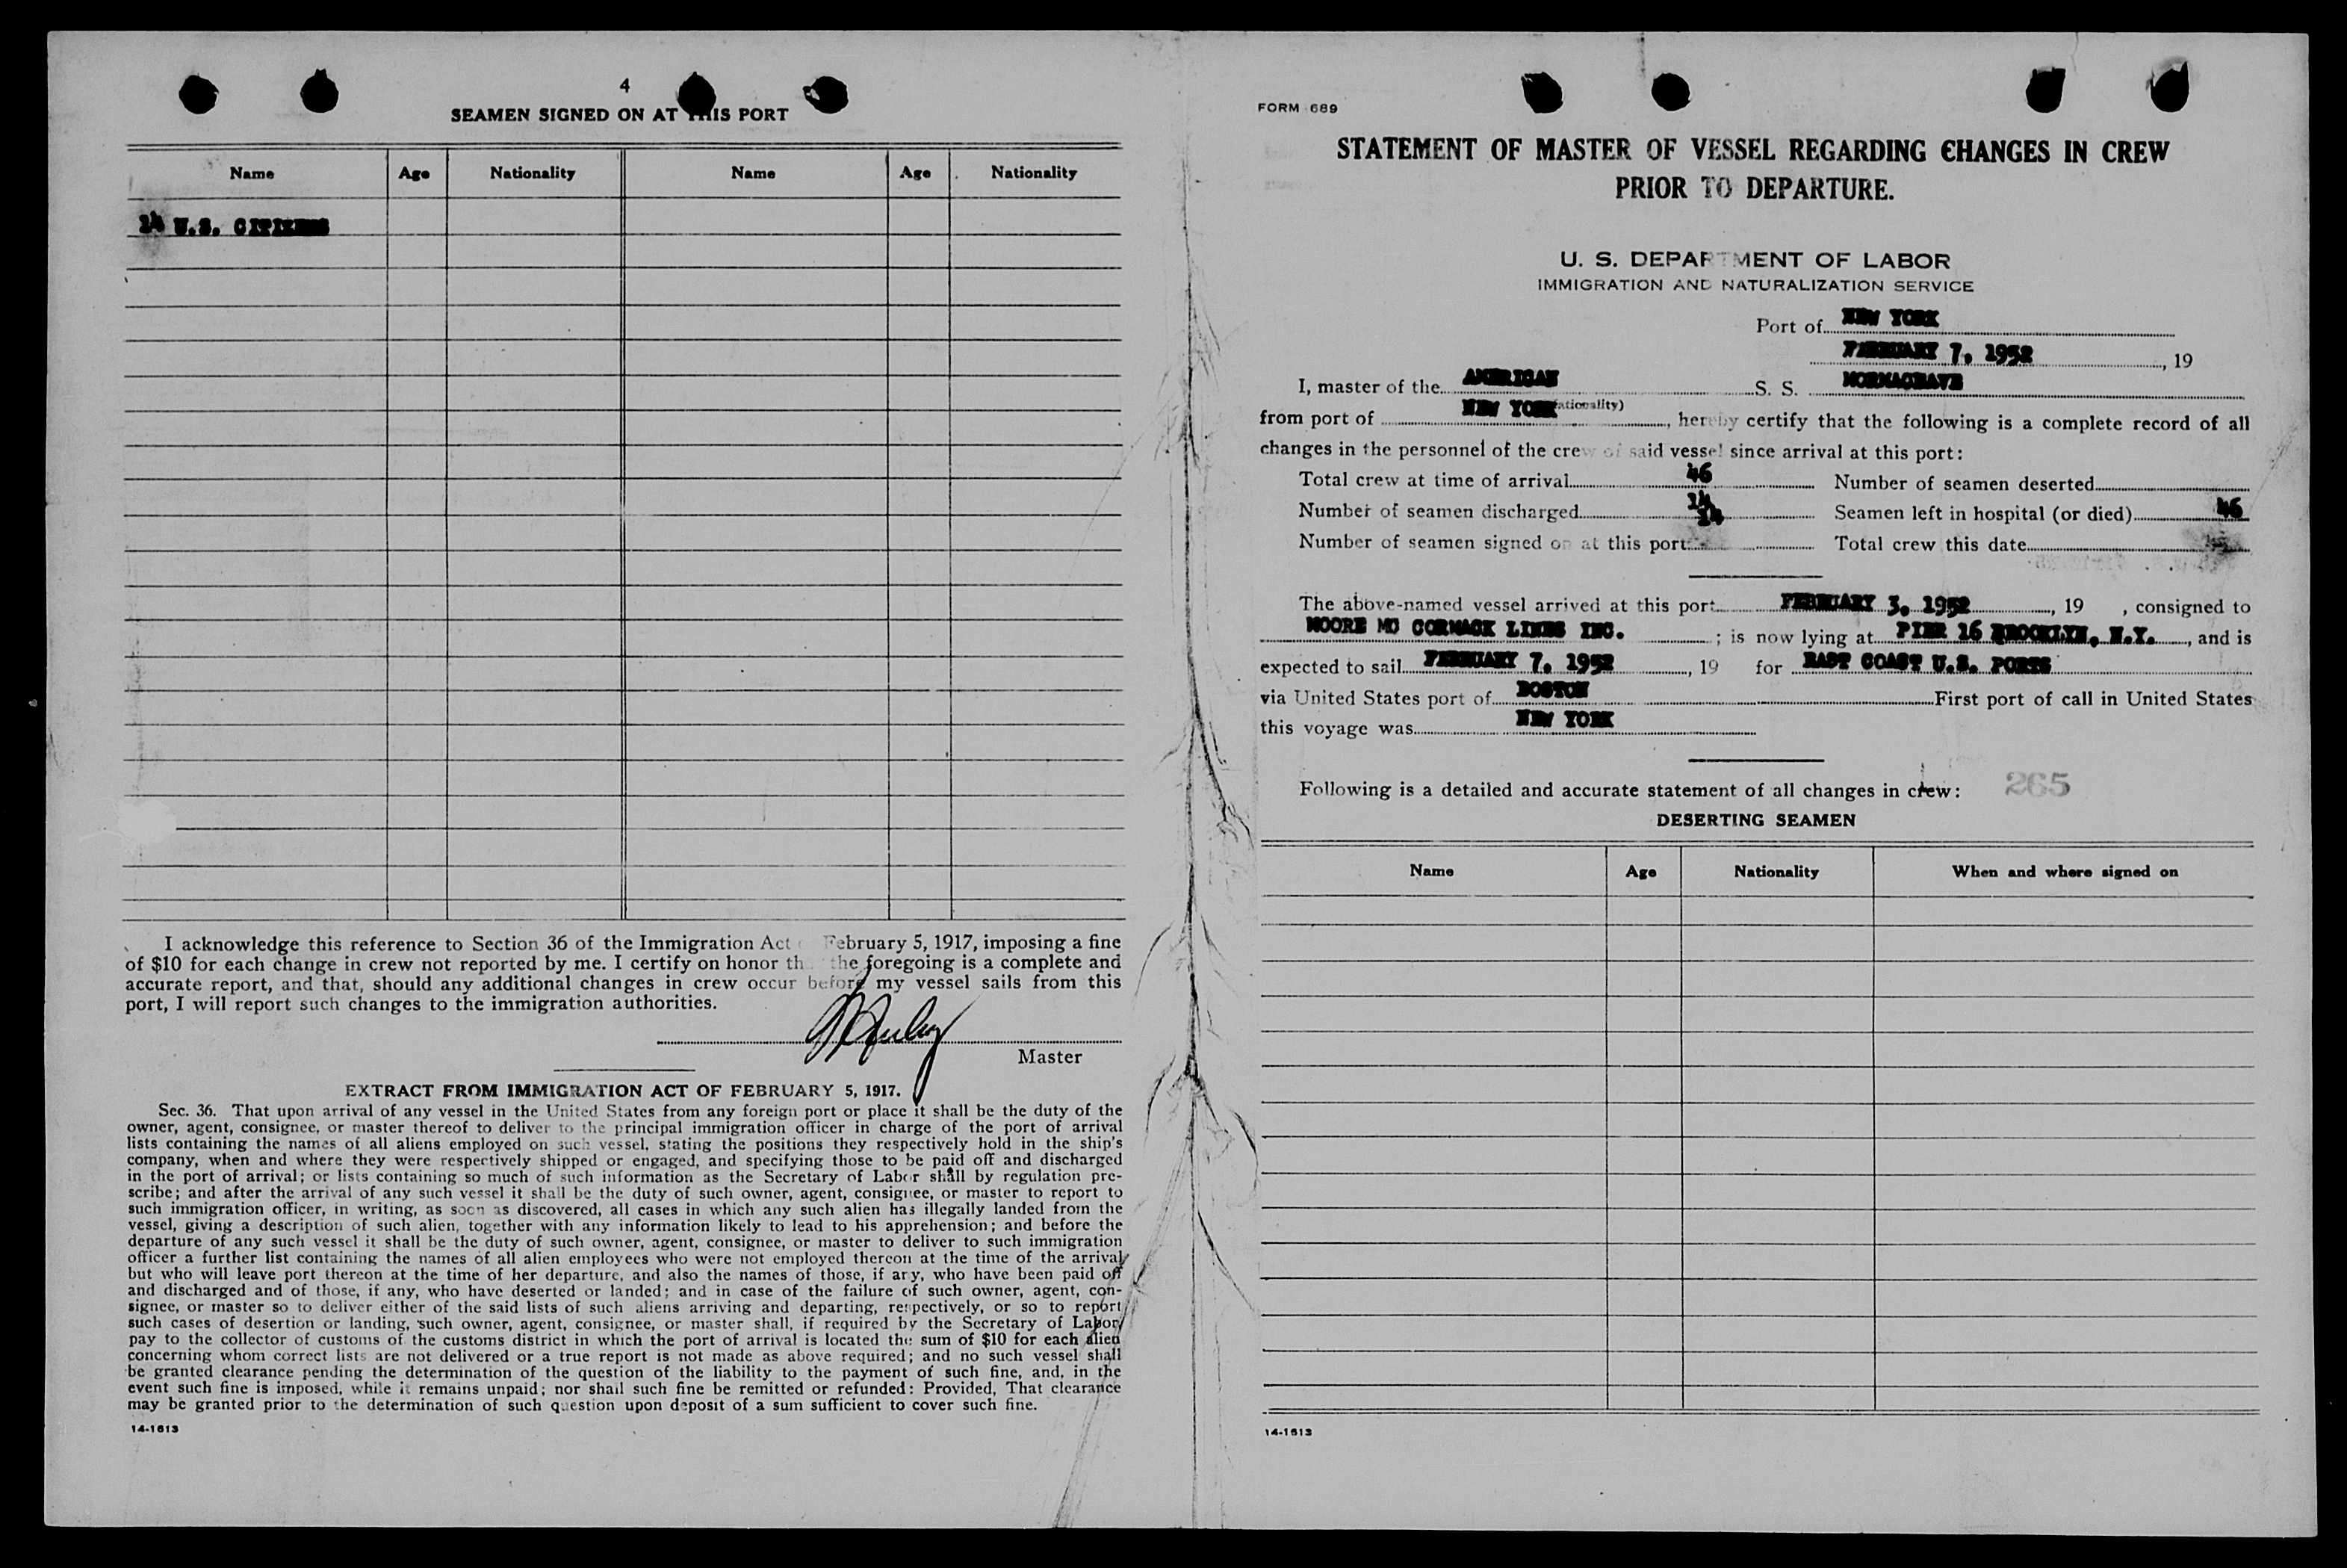 4
SEAMEN SIGNED ON AT THIS PORT
Name Age Nationality Name Age Nationality
14 U.S. CITIZENS
I acknowledge this reference to Section 36 of the Immigration Act February 5, 1917, imposing a fine
of $10 for each change in crew not reported by me. I certify on honor the foregoing is a complete and
accurate report, and that, should any additional changes in crew occur before my vessel sails from this
port, I will report such changes to the immigration authorities.
Master
EXTRACT FROM IMMIGRATION ACT OF FEBRUARY 5, 1917.
Sec. 36. That upon arrival of any vessel in the United States from any foreign port or place it shall be the duty of the
owner, agent, consignee, or master thereof to deliver to the principal immigration officer in charge of the port of arrival
lists containing the names of all aliens employed on such vessel, stating the positions they respectively hold in the ship's
company, when and where they were respectively shipped or engaged, and specifying those to be paid off and discharged
in the port of arrival; or lists containing so much of such information as the Secretary of Labor shall by regulation pre-
scribe; and after the arrival of any such vessel it shall be the duty of such owner, agent, consignee, or master to report to
such immigration officer, in writing, as soon as discovered, all cases in which any such alien has illegally landed from the
vessel, giving a description of such alien, together with any information likely to lead to his apprehension; and before the
departure of any such vessel it shall be the duty of such owner, agent, consignee, or master to deliver to such immigration
officer a further list containing the names of all alien employees who were not employed thereon at the time of the arrival
but who will leave port thereon at the time of her departure, and also the names of those, if any, who have been paid off
and discharged and of those, if any, who have deserted or landed; and in case of the failure of such owner, agent, con-
signee, or master so to deliver either of the said lists of such aliens arriving and departing, respectively, or so to report
such cases of desertion or landing, such owner, agent, consignee, or master shall, if required by the Secretary of Labor,
pay to the collector of customs of the customs district in which the port of arrival is located the sum of $10 for each alien
concerning whom correct lists are not delivered or a true report is not made as above required; and no such vessel shall
be granted clearance pending the determination of the question of the liability to the payment of such fine, and, in the
event such fine is imposed, while it remains unpaid; nor shall such fine be remitted or refunded: Provided, That clearance
may be granted prior to the determination of such question upon deposit of a sum sufficient to cover such fine.
14-1613
FORM 689
STATEMENT OF MASTER OF VESSEL REGARDING CHANGES IN CREW
PRIOR TO DEPARTURE.
U. S. DEPARTMENT OF LABOR
IMMIGRATION AND NATURALIZATION SERVICE
Port of NEW YORK
FEBRUARY 7, 1952, 19
I, master of the AMERICAN S. S. MORMACDAVE
from port of NEW YORK (Nationality), hereby certify that the following is a complete record of all
changes in the personnel of the crew of said vessel since arrival at this port:
Total crew at time of arrival 46 Number of seamen deserted
Number of seamen discharged 14 Seamen left in hospital (or died) 46
Number of seamen signed on at this port 14 Total crew this date
The above-named vessel arrived at this port FEBRUARY 3, 1952, 19 , consigned to
MOORE MC CORMACK LINES INC. ; is now lying at PIER 16 BROOKLYN, N.Y., and is
expected to sail FEBRUARY 7, 1952, 19 for EAST COAST U.S. PORTS
via United States port of BOSTON First port of call in United States
this voyage was NEW YORK
Following is a detailed and accurate statement of all changes in crew: 265
DESERTING SEAMEN
Name Age Nationality When and where signed on
14-1613